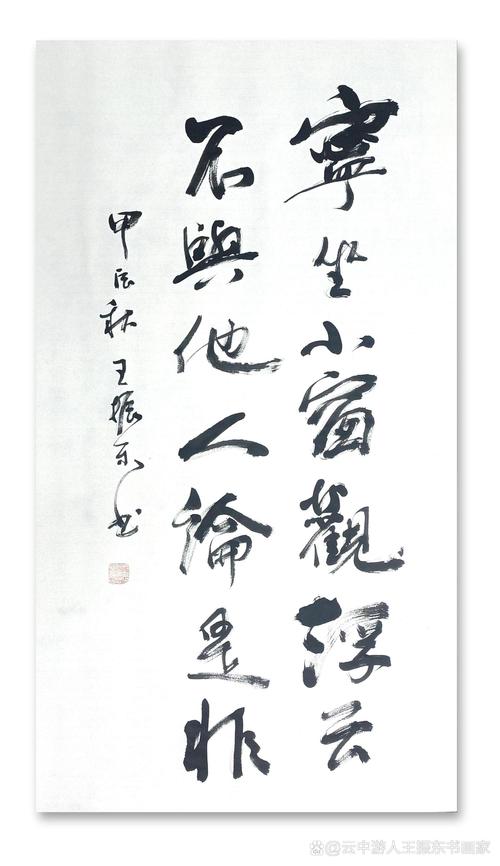 寧坐小窗觀浮云
不與他人論是非
甲辰秋 王振东书
@云中游人王振东书画家